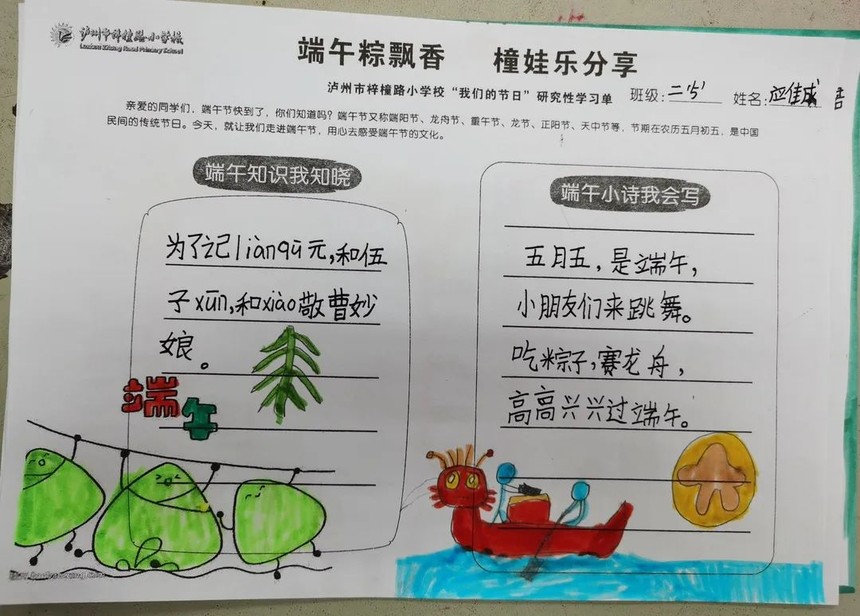 泸州市梓橦路小学校
Luzhou Zitong Road Primary School
端午粽飘香 橦娃乐分享
泸州市梓橦路小学校“我们的节日”研究性学习单 班级:二5 姓名:应佳威
亲爱的同学们，端午节快到了，你们知道吗？端午节又称端阳节、龙舟节、重午节、龙节、正阳节、天中节等，节期在农历五月初五，是中国
民间的传统节日。今天，就让我们走进端午节，用心去感受端午节的文化。
端午知识我知晓
为了记liànqū元,和伍
子xūn,和xiào敬曹妙
娘。
端午
端午小诗我会写
五月五，是端午，
小朋友们来跳舞。
吃粽子，赛龙舟，
高高兴兴过端午。